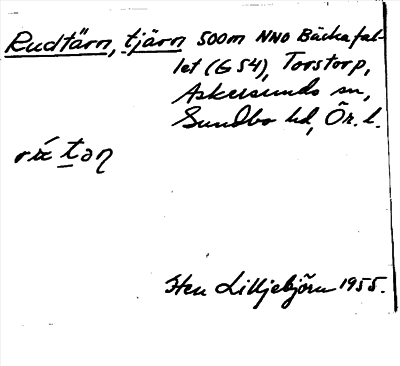 Rudtärn, tjärn 500m NNO Bäckafal-
let (G 54), Torstorp,
Askersunds sn,
Sundbo hd, Ör. l.
Sten Lilljebjörn 1955.